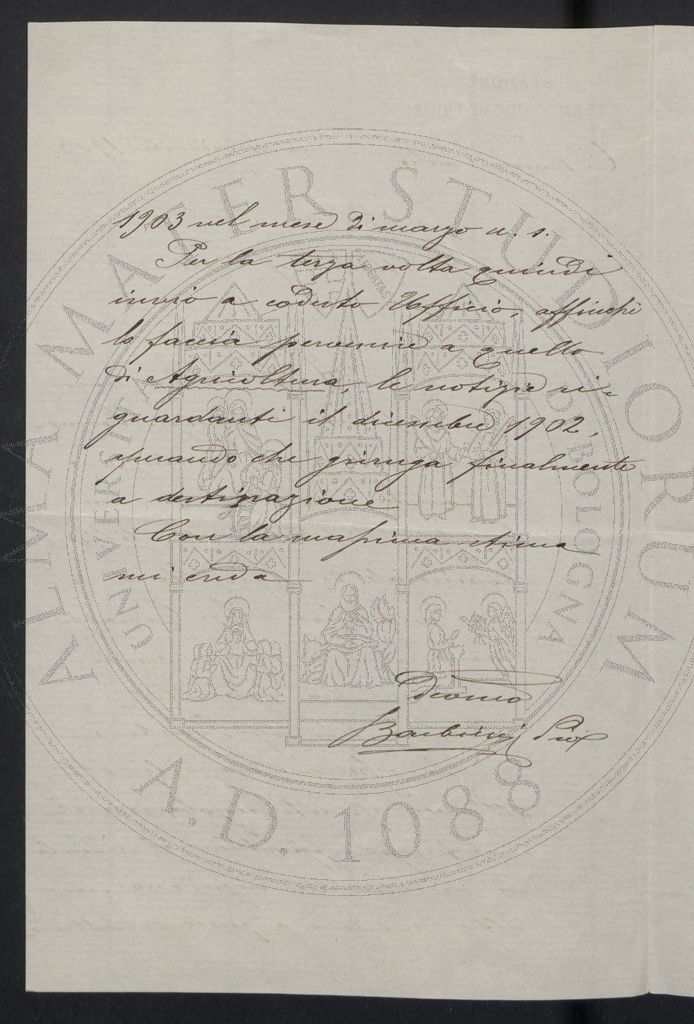 1903 nel mese di marzo u. s.
Per la terza volta quindi
invio a codesto Ufficio, affinchè
lo faccia pervenire a quello
di Agricoltura, le notizie ri-
guardanti il dicembre 1902,
sperando che giunga finalmente
a destinazione
Con la massima stima
mi creda
Barbieri
ALMA MATER STUDIORUM
UNIVERSITÀ BOLOGNA
A.D. 1088